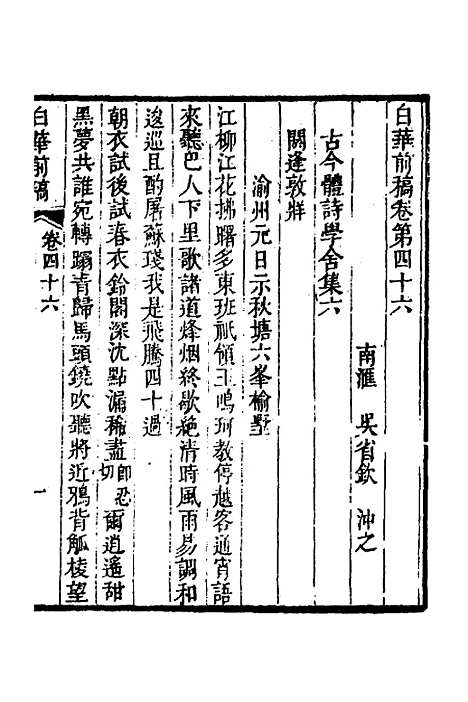 白華前稿卷第四十六
南滙 吳省欽 沖之
古今體詩學舍集六
閼逢敦牂
渝州元日示秋塘六峯榆墅
江柳江花拂曙多東班祇領玉鳴珂教停越客通宵語
來聽巴人下里歌諸道烽烟終歇絶清時風雨易調和
逡巡且酌屠蘇琖我是飛騰四十過
朝衣試後試春衣鈴閣深沈點漏稀盡即忍切爾道遙甜
黑夢共誰宛轉蹋青歸馬頭鐃吹聽將近鴉背觚棱望
白華前稿 卷四十六 一